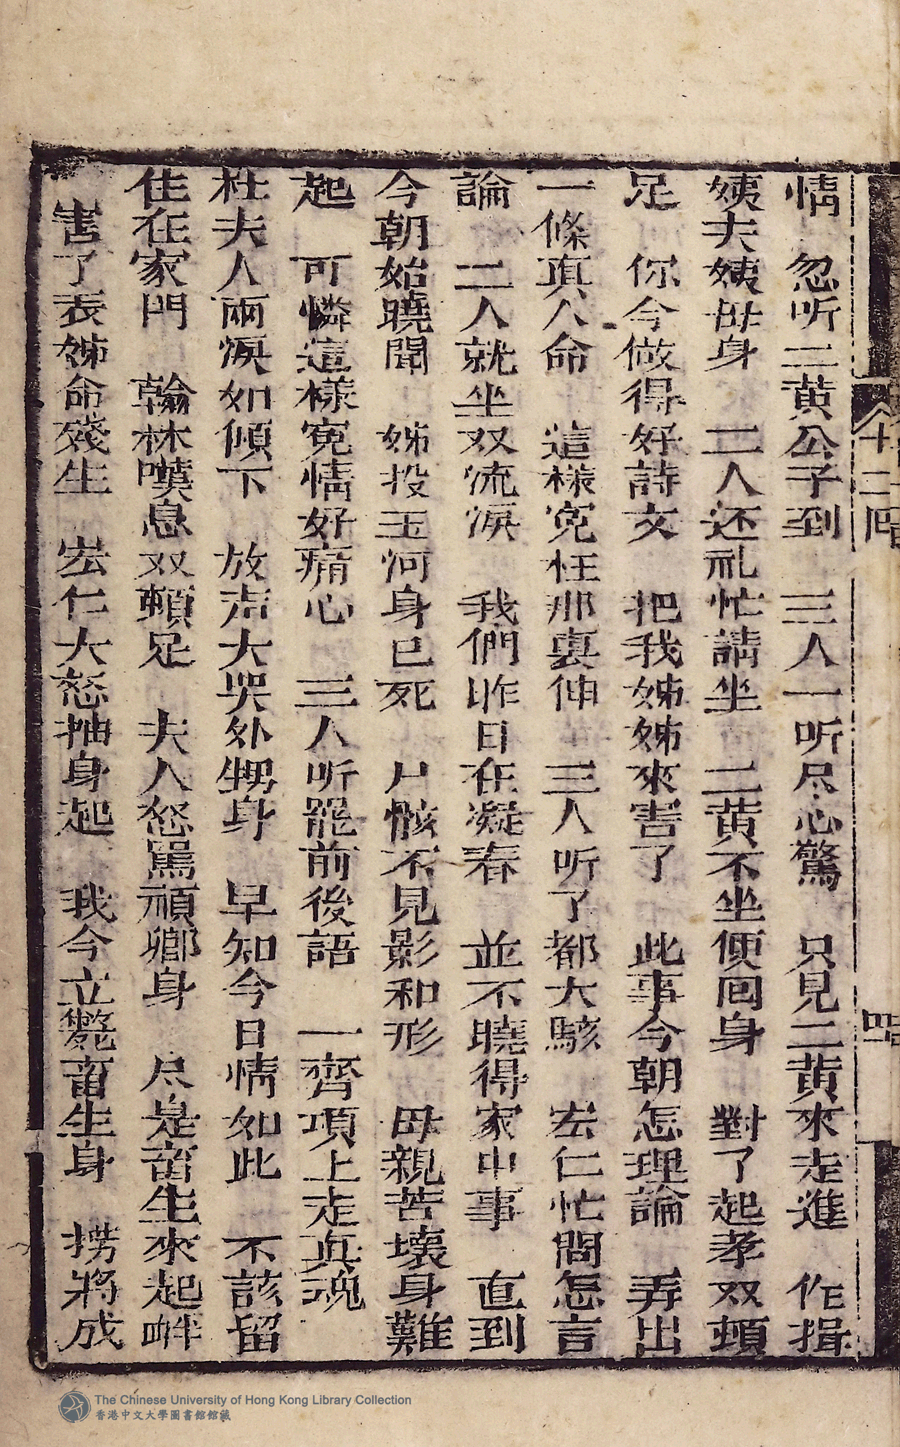 情　忽听二黄公子到　三人一听尽心驚　只見二黄來走進　作揖
姨夫姨母身　二人还礼忙請坐　二黄不坐便回身　對了起孝双頓
足　你今做得好詩文　把我姊姊來害了　此事今朝怎理論　弄出
一條真人命　這樣冤枉那裏伸　三人听了都大駭　宏仁忙問怎言
論　二人就坐双流淚　我們昨日在凝春　並不曉得家中事　直到
今朝始曉聞　姊投玉河身已死　尸骸不見影和形　母親苦壞身難
起　可憐這樣冤情好痛心　三人听罷前後語　一齊項上走真魂
杜夫人兩淚如傾下　放声大哭外甥身　早知今日情如此　不該留
住在家門　翰林嘆息双頓足　夫人怒罵頑鄉身　尽是畜生來起衅
害了表姊命殘生　宏仁大怒抽身起　我今立斃畜生身　撈將成
十二回
四
The Chinese University of Hong Kong Library Collection
香港中文大學圖書館館藏